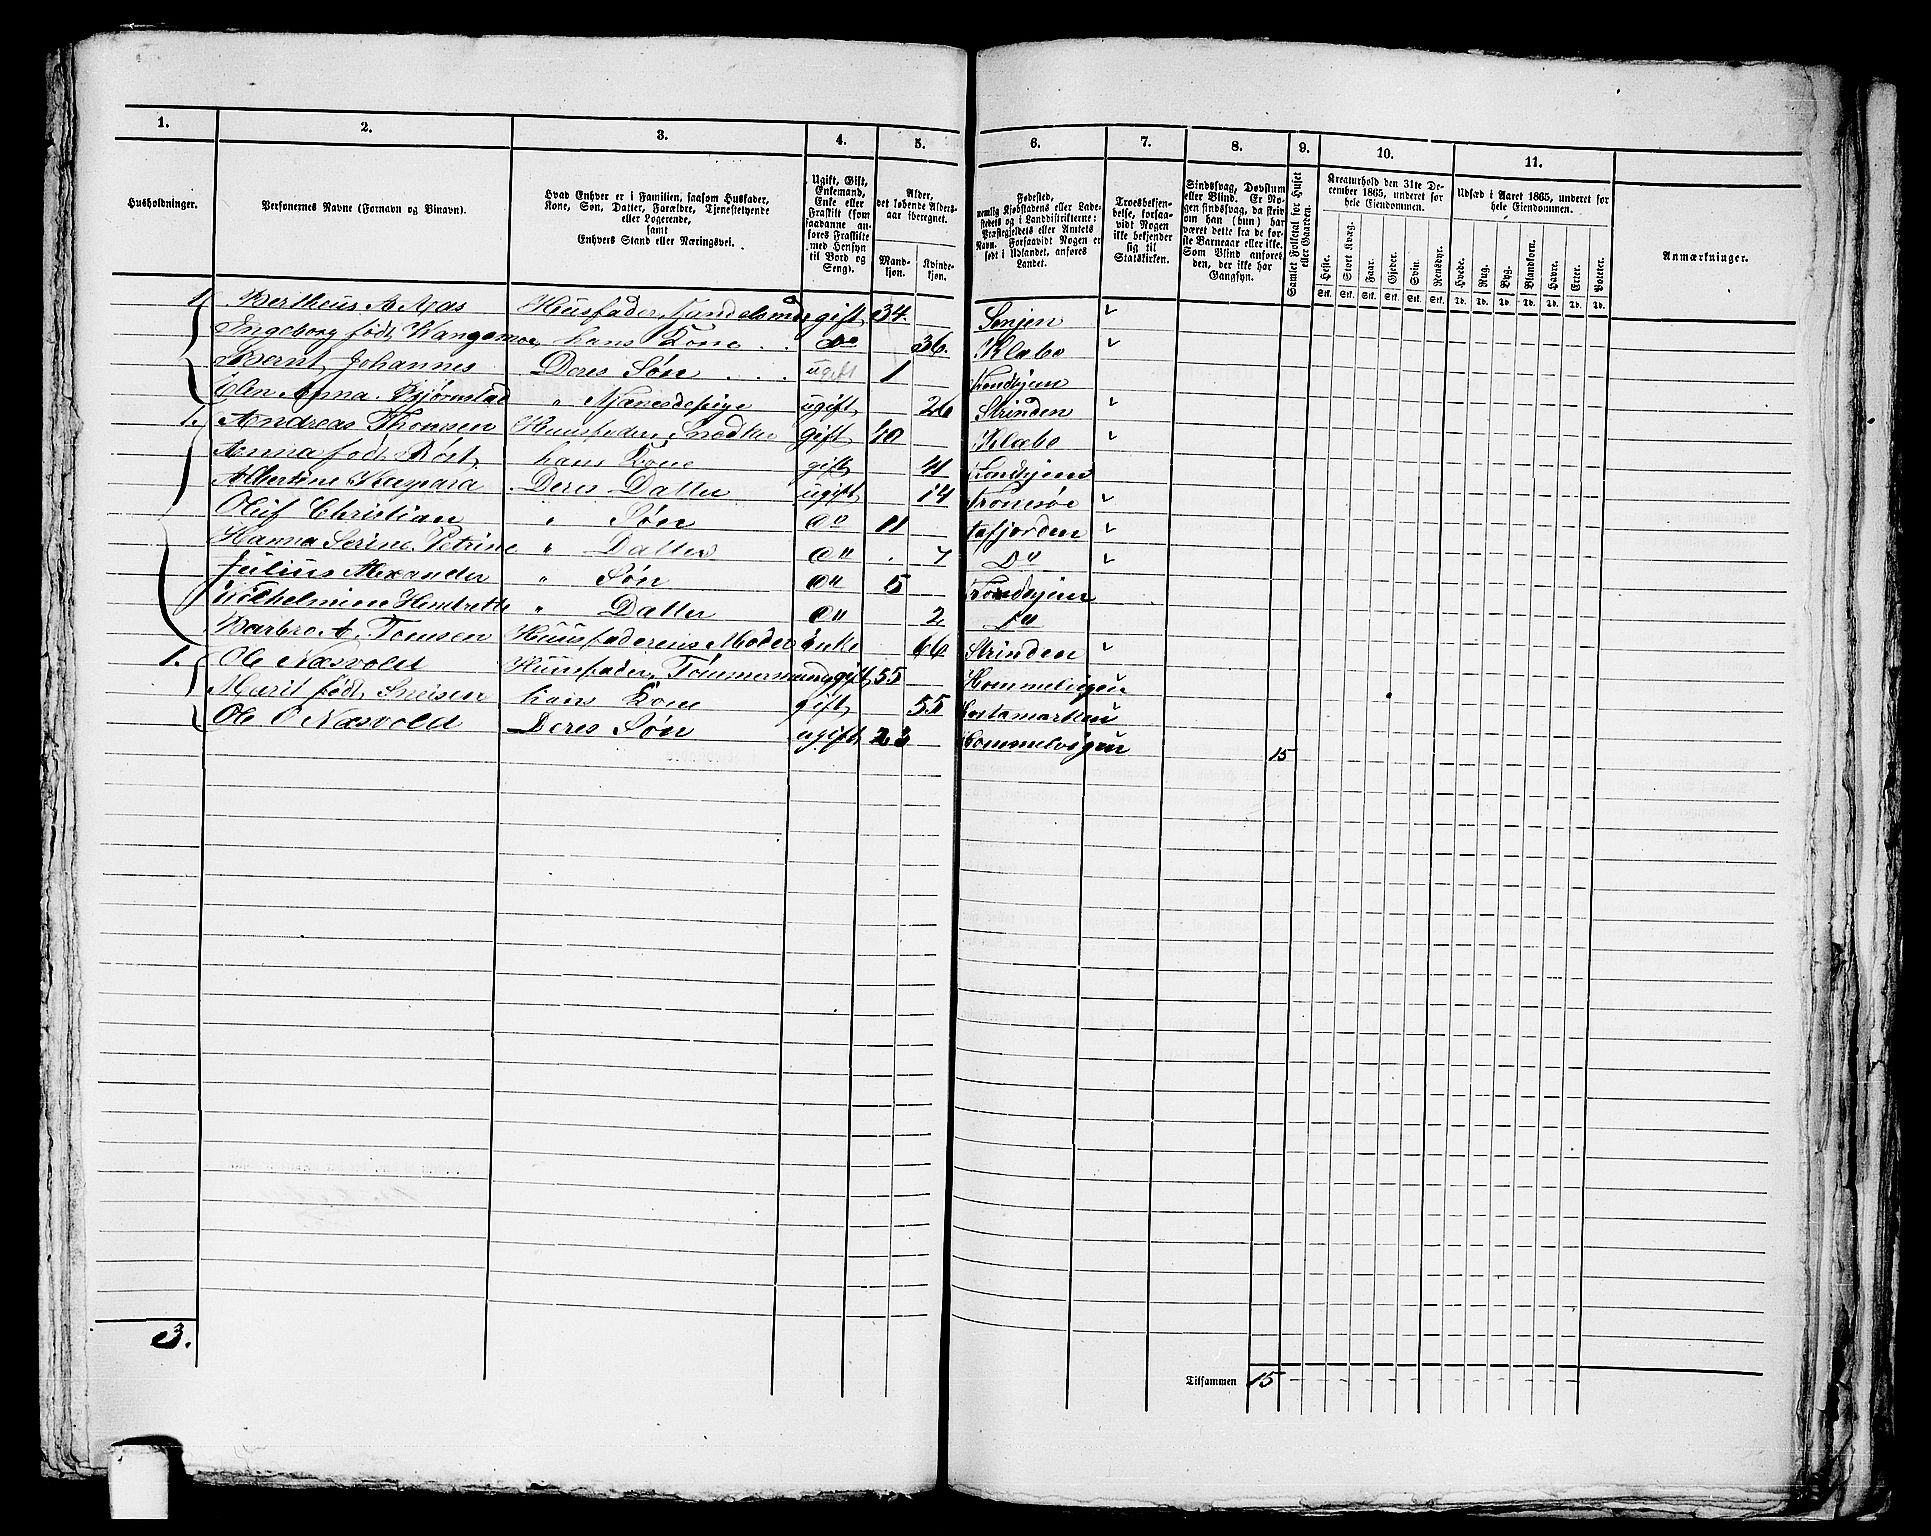 1. 2. 3. 4. 5. 6. 7. 8. 9. 10. 11.
Husholdninger.
Personernes Navne (Fornavn og Binavn).
Hvad Enhver er i Familien, saasom Husfader,
Kone, Søn, Datter, Forældre, Tjenestetyende
eller Logerende,
samt
Enhvers Stand eller Næringsvei.
Ugift, Gift,
Enkemand,
Enke eller
Fraskilt (som
saadanne an-
føres Fraskilte
med Hensyn
til Bord og
Seng).
Alder,
det løbende Alders-
aar iberegnet.
Mand-
kjøn.
Kvinde-
kjøn.
Fødested,
nemlig Kjøbstadens eller Lade-
stedets og i Landdistrikterne:
Præstegjeldets eller Amtets
Navn. Forsaavidt Nogen er
født i Udlandet, anføres
Landet.
Troesbekjen-
delse, forsaa-
vidt Nogen
ikke bekjender
sig til
Statskirken.
Sindssvag, Døvstum
eller Blind. Er No-
gen sindssvag, da skriv
om han (hun) har
været dette fra de før-
ste Barneaar eller ikke.
Som Blind anføres
den, der ikke har
Gangsyn.
Samlet Folketal for Huset
eller Gaarden.
Kreaturhold den 31te De-
cember 1865, underet for
hele Eiendommen.
Heste. Stort Kvæg. Faar. Gjeder. Svin. Rensdyr.
Stk. Stk. Stk. Stk. Stk. Stk.
Udsæd i Aaret 1865, underet for
hele Eiendommen.
Hvede. Rug. Byg. Blandkorn. Havre. Erter. Poteter.
Td. Td. Td. Td. Td. Td. Td.
Anmærkninger.
1. Bertheus A Aas Husfader, Handelsmd gift 34. Senjen
Ingeborg født Wangsmoe hans Kone Do 36. Klæbo
Bernt Johannes Deres Søn ugift 1 Trondhjem
Elen Anna Bjørnstad " Næriesdepige ugift 26 Strinden
1. Andreas Thomsen Huusfader, Snedker gift 40 Klæbo
Anna født Røst hans Kone gift 41 Trondhjem
Albertine Kaspara Deres Datter ugift 14 Tromsøe
Oluf Christian " Søn Do 11
Hanna Serine Petrine " Datter Do 7 Do
Julius Alexander " Søn Do 5 Trondhjem
Vilhelmine Hendrette " Datter Do 2 Do
Barbro A. Tomsen Huusfaderens Moder Enke 66 Strinden
1. Ole Næsvold Huusfader, Tømmermand gift 55 Hommelvigen
Marit født hans Kone gift 55
Ole O Næsvold Deres Søn ugift 23 Hommelvigen 15
3.
Tilsammen 15